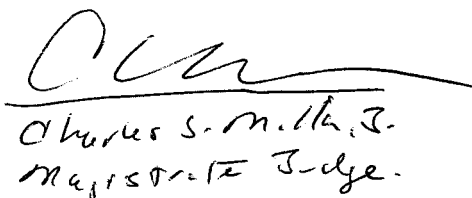 Charles S. Miller, Jr.
Magistrate Judge.